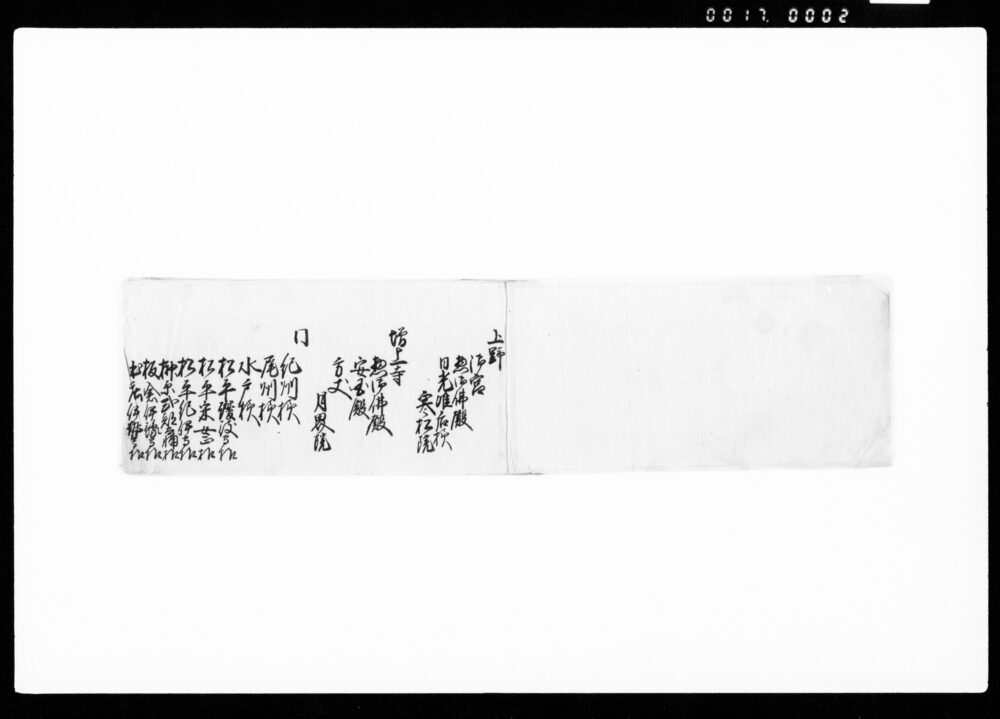 0017. 0002
上野
御宮
惣御佛殿
日光准后様
寒松院
増上寺
惣御佛殿
安国殿
方丈
月界院
紀州様
尾州様
水戸様
松平讃岐守様
松平
松平紀伊守様
榊原式部大輔様
板倉伊勢守様